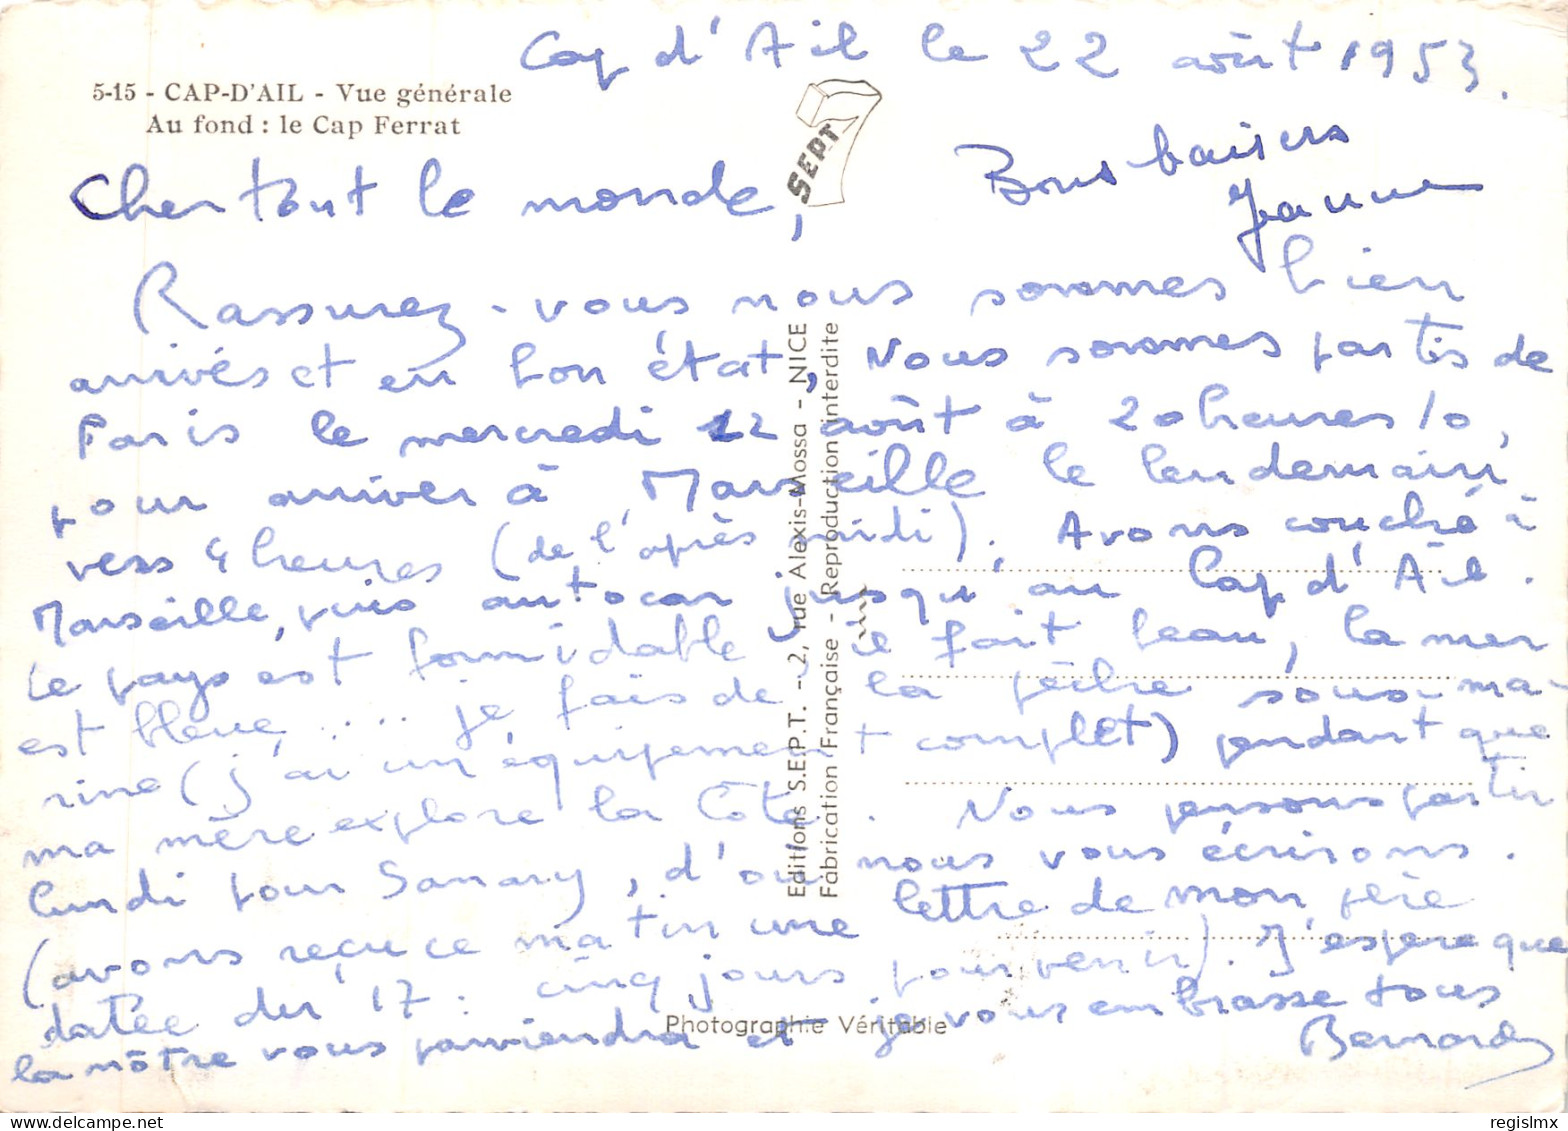 Cap d'Ail le 22 août 1953.
5-15 - CAP-D'AIL - Vue générale
Au fond : le Cap Ferrat
SEPT
7
Cher tout le monde,
Bons baisers
Jeanne
Rassurez-vous nous sommes bien
arrivés et en bon état, Nous sommes partis de
Paris le mercredi 12 août à 20 heures 10,
pour arriver à Marseille le lendemain
vers 4 heures (de l'après midi). Avons couché à
Marseille, puis autocar jusqu'au Cap d'Ail.
Le pays est formidable, il fait beau, la mer
est bleue, ..... je fais de la pêche sous-ma-
rine (j'ai un équipement complet) pendant que
ma mère explore la Côte. Nous pensons partir
lundi pour Sanary, d'où nous vous écrirons.
(avons reçu ce matin une lettre de mon père
datée du 17 : cinq jours pour venir). J'espère que
la nôtre vous parviendra et je vous embrasse tous
Bernard
Editions S.E.P.T. - 2, rue Alexis-Mossa - NICE
Fabrication Française - Reproduction interdite
Photographie Véritable
regislmx